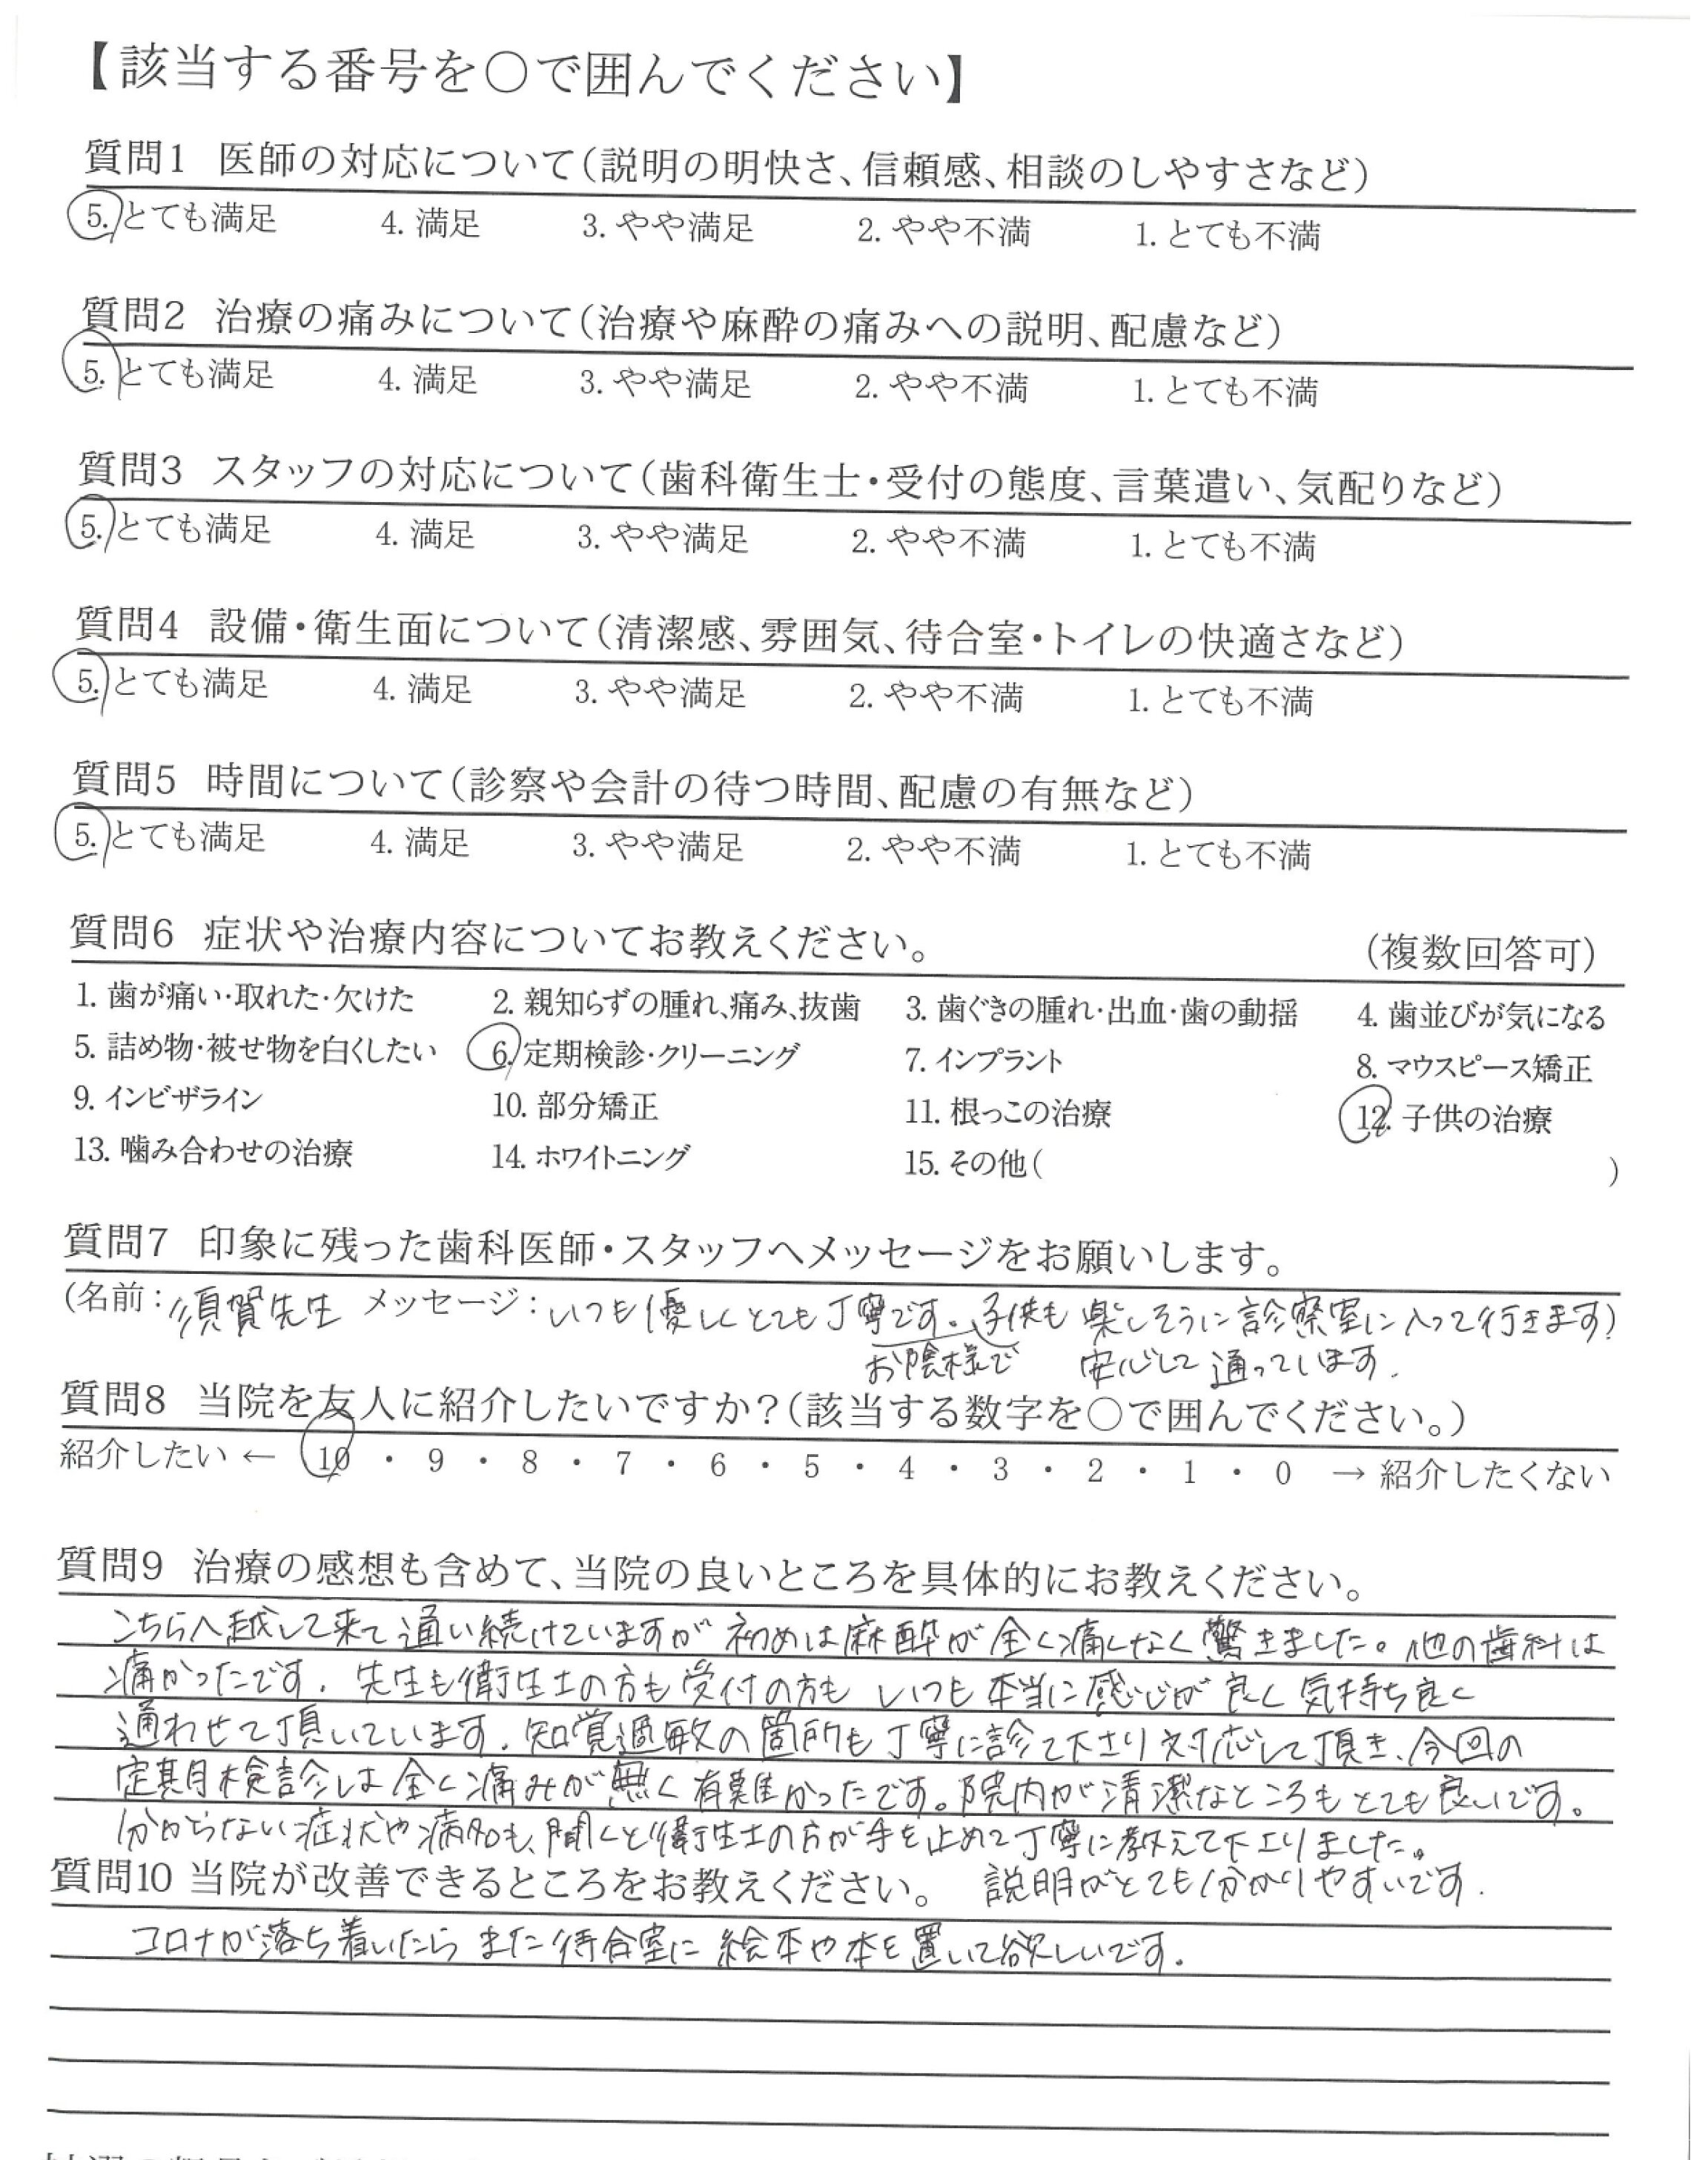 【該当する番号を〇で囲んでください】
質問1 医師の対応について(説明の明快さ、信頼感、相談のしやすさなど)
5. とても満足 4. 満足 3. やや満足 2. やや不満 1. とても不満
質問2 治療の痛みについて(治療や麻酔の痛みへの説明、配慮など)
5. とても満足 4. 満足 3. やや満足 2. やや不満 1. とても不満
質問3 スタッフの対応について(歯科衛生士・受付の態度、言葉遣い、気配りなど)
5. とても満足 4. 満足 3. やや満足 2. やや不満 1. とても不満
質問4 設備・衛生面について(清潔感、雰囲気、待合室・トイレの快適さなど)
5. とても満足 4. 満足 3. やや満足 2. やや不満 1. とても不満
質問5 時間について(診察や会計の待つ時間、配慮の有無など)
5. とても満足 4. 満足 3. やや満足 2. やや不満 1. とても不満
質問6 症状や治療内容についてお教えください。 (複数回答可)
1. 歯が痛い・取れた・欠けた 2. 親知らずの腫れ、痛み、抜歯 3. 歯ぐきの腫れ・出血・歯の動揺 4. 歯並びが気になる
5. 詰め物・被せ物を白くしたい 6. 定期検診・クリーニング 7. インプラント 8. マウスピース矯正
9. インビザライン 10. 部分矯正 11. 根っこの治療 12. 子供の治療
13. 噛み合わせの治療 14. ホワイトニング 15. その他( )
質問7 印象に残った歯科医師・スタッフへメッセージをお願いします。
(名前:須賀先生 メッセージ:いつも優しくとても丁寧です。子供も楽しそうに診察室に入って行きます)
お陰様で 安心して通っています.
質問8 当院を友人に紹介したいですか?(該当する数字を〇で囲んでください。)
紹介したい ← 10 ・ 9 ・ 8 ・ 7 ・ 6 ・ 5 ・ 4 ・ 3 ・ 2 ・ 1 ・ 0 → 紹介したくない
質問9 治療の感想も含めて、当院の良いところを具体的にお教えください。
こちらへ越して来て通い続けていますが初めは麻酔が全く痛くなく驚きました。他の歯科は
痛かったです. 先生も衛生士の方も受付の方も いつも本当に感じが良く気持ち良く
通わせて頂いています. 知覚過敏の箇所も丁寧に診て下さり対応して頂き、今回の
定期検診は全く痛みが無く有難かったです。院内が清潔なところもとても良いです。
分からない症状や病名も、聞くと衛生士の方が手を止めて丁寧に教えて下さりました。
質問10 当院が改善できるところをお教えください。 説明がとても分かりやすいです.
コロナが落ち着いたら また待合室に 絵本や本を置いて欲しいです.